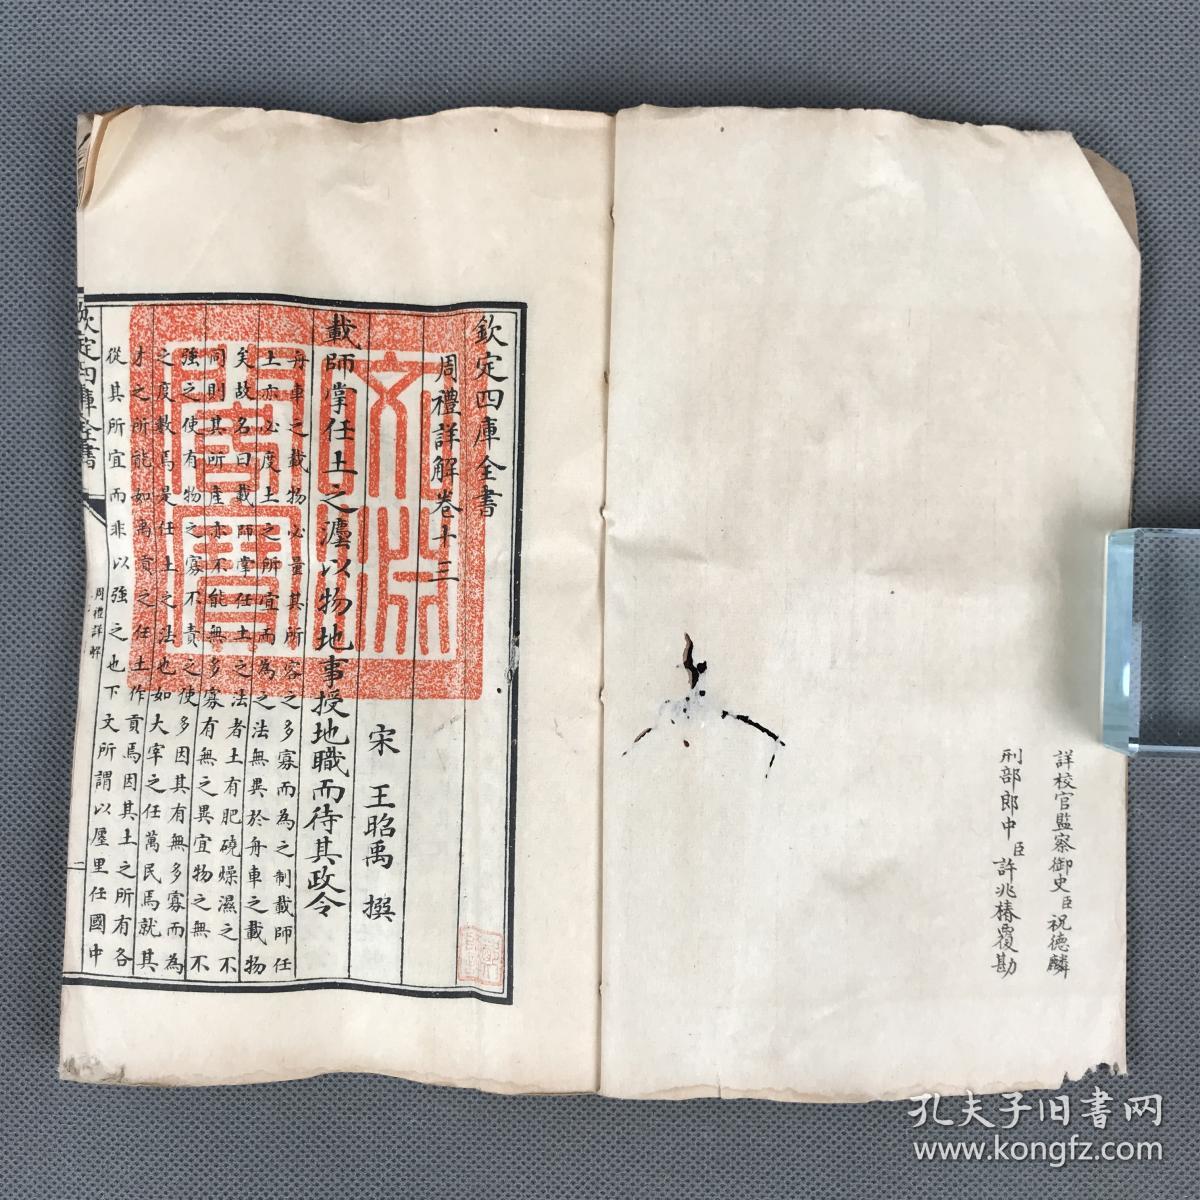 詳校官監察御史臣祝德麟
刑部郎中臣許兆椿覆勘
欽定四庫全書
周禮詳解卷十三
宋 王昭禹 撰
載師掌任土之灋以物地事授地職而待其政令
舟車之載物必量其所容之多寡而為之制載師任
土亦必度土之所宜而為之法無異於舟車之載物
矣故名曰載師掌任土之法者土有肥磽燥濕之不
同則其所產亦不能無多寡有無之異宜物之無不
強之使有物之寡不責之使多因其有無多寡而為
之度數焉是任土之法也如大宰之任萬民焉就其
才之所能如禹貢之任土作貢焉因其土之所有各
從其所宜而非以強之也下文所謂以廛里任國中
欽定四庫全書
周禮詳解
文淵閣寶
孔夫子旧书网
www.kongfz.com